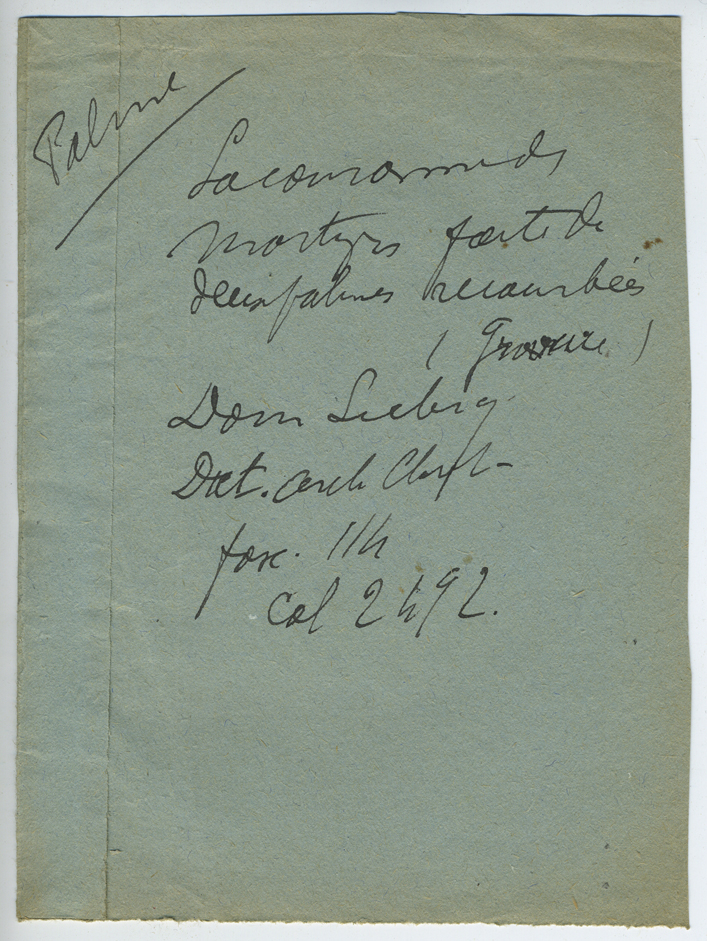 Palme
La couronne ds
martyrs faite de
deux palmes recourbées
( Gravure )
Dom
Dict. arch Chret-
fasc. 114
Col 2492.